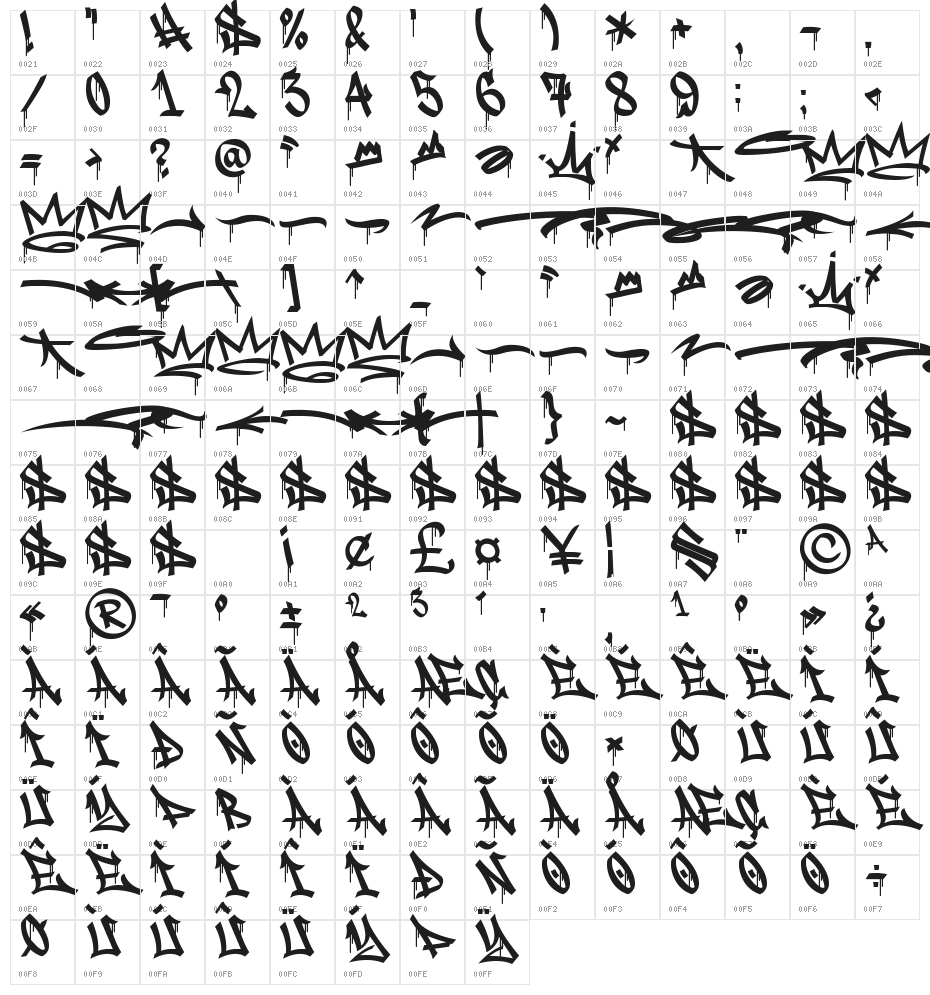 ! " # $ % & ' ( ) * + , - .
0021 0022 0023 0024 0025 0026 0027 0028 0029 002A 002B 002C 002D 002E
/ 0 1 2 3 4 5 6 7 8 9 : ; <
002F 0030 0031 0032 0033 0034 0035 0036 0037 0038 0039 003A 003B 003C
= > ? @
003D 003E 003F 0040 0041 0042 0043 0044 0045 0046 0047 0048 0049 004A
004B 004C 004D 004E 004F 0050 0051 0052 0053 0054 0055 0056 0057 0058
[ \ ] ^ _ `
0059 005A 005B 005C 005D 005E 005F 0060 0061 0062 0063 0064 0065 0066
0067 0068 0069 006A 006B 006C 006D 006E 006F 0070 0071 0072 0073 0074
{ | } ~ $ $ $ $
0075 0076 0077 0078 0079 007A 007B 007C 007D 007E 0080 0082 0083 0084
$ $ $ $ $ $ $ $ $ $ $ $ $ $
0085 008A 008B 008C 008E 0091 0092 0093 0094 0095 0096 0097 009A 009B
$ $ $ ¡ ¢ £ ¤ ¥ ¦ § ¨ © ª
009C 009E 009F 00A0 00A1 00A2 00A3 00A4 00A5 00A6 00A7 00A8 00A9 00AA
« ® ¯ ° ± ² ³ ´ · ¸ ¹ º » ¿
00AB 00AE 00AF 00B0 00B1 00B2 00B3 00B4 00B7 00B8 00B9 00BA 00BB 00BF
À Á Â Ã Ä Å Æ Ç È É Ê Ë Ì Í
00C0 00C1 00C2 00C3 00C4 00C5 00C6 00C7 00C8 00C9 00CA 00CB 00CC 00CD
Î Ï Ð Ñ Ò Ó Ô Õ Ö × Ø Ù Ú Û
00CE 00CF 00D0 00D1 00D2 00D3 00D4 00D5 00D6 00D7 00D8 00D9 00DA 00DB
Ü Ý Þ ß À Á Â Ã Ä Å Æ Ç È É
00DC 00DD 00DE 00DF 00E0 00E1 00E2 00E3 00E4 00E5 00E6 00E7 00E8 00E9
Ê Ë Ì Í Î Ï Ð Ñ Ò Ó Ô Õ Ö ÷
00EA 00EB 00EC 00ED 00EE 00EF 00F0 00F1 00F2 00F3 00F4 00F5 00F6 00F7
Ø Ù Ú Û Ü Ý Þ Ÿ
00F8 00F9 00FA 00FB 00FC 00FD 00FE 00FF